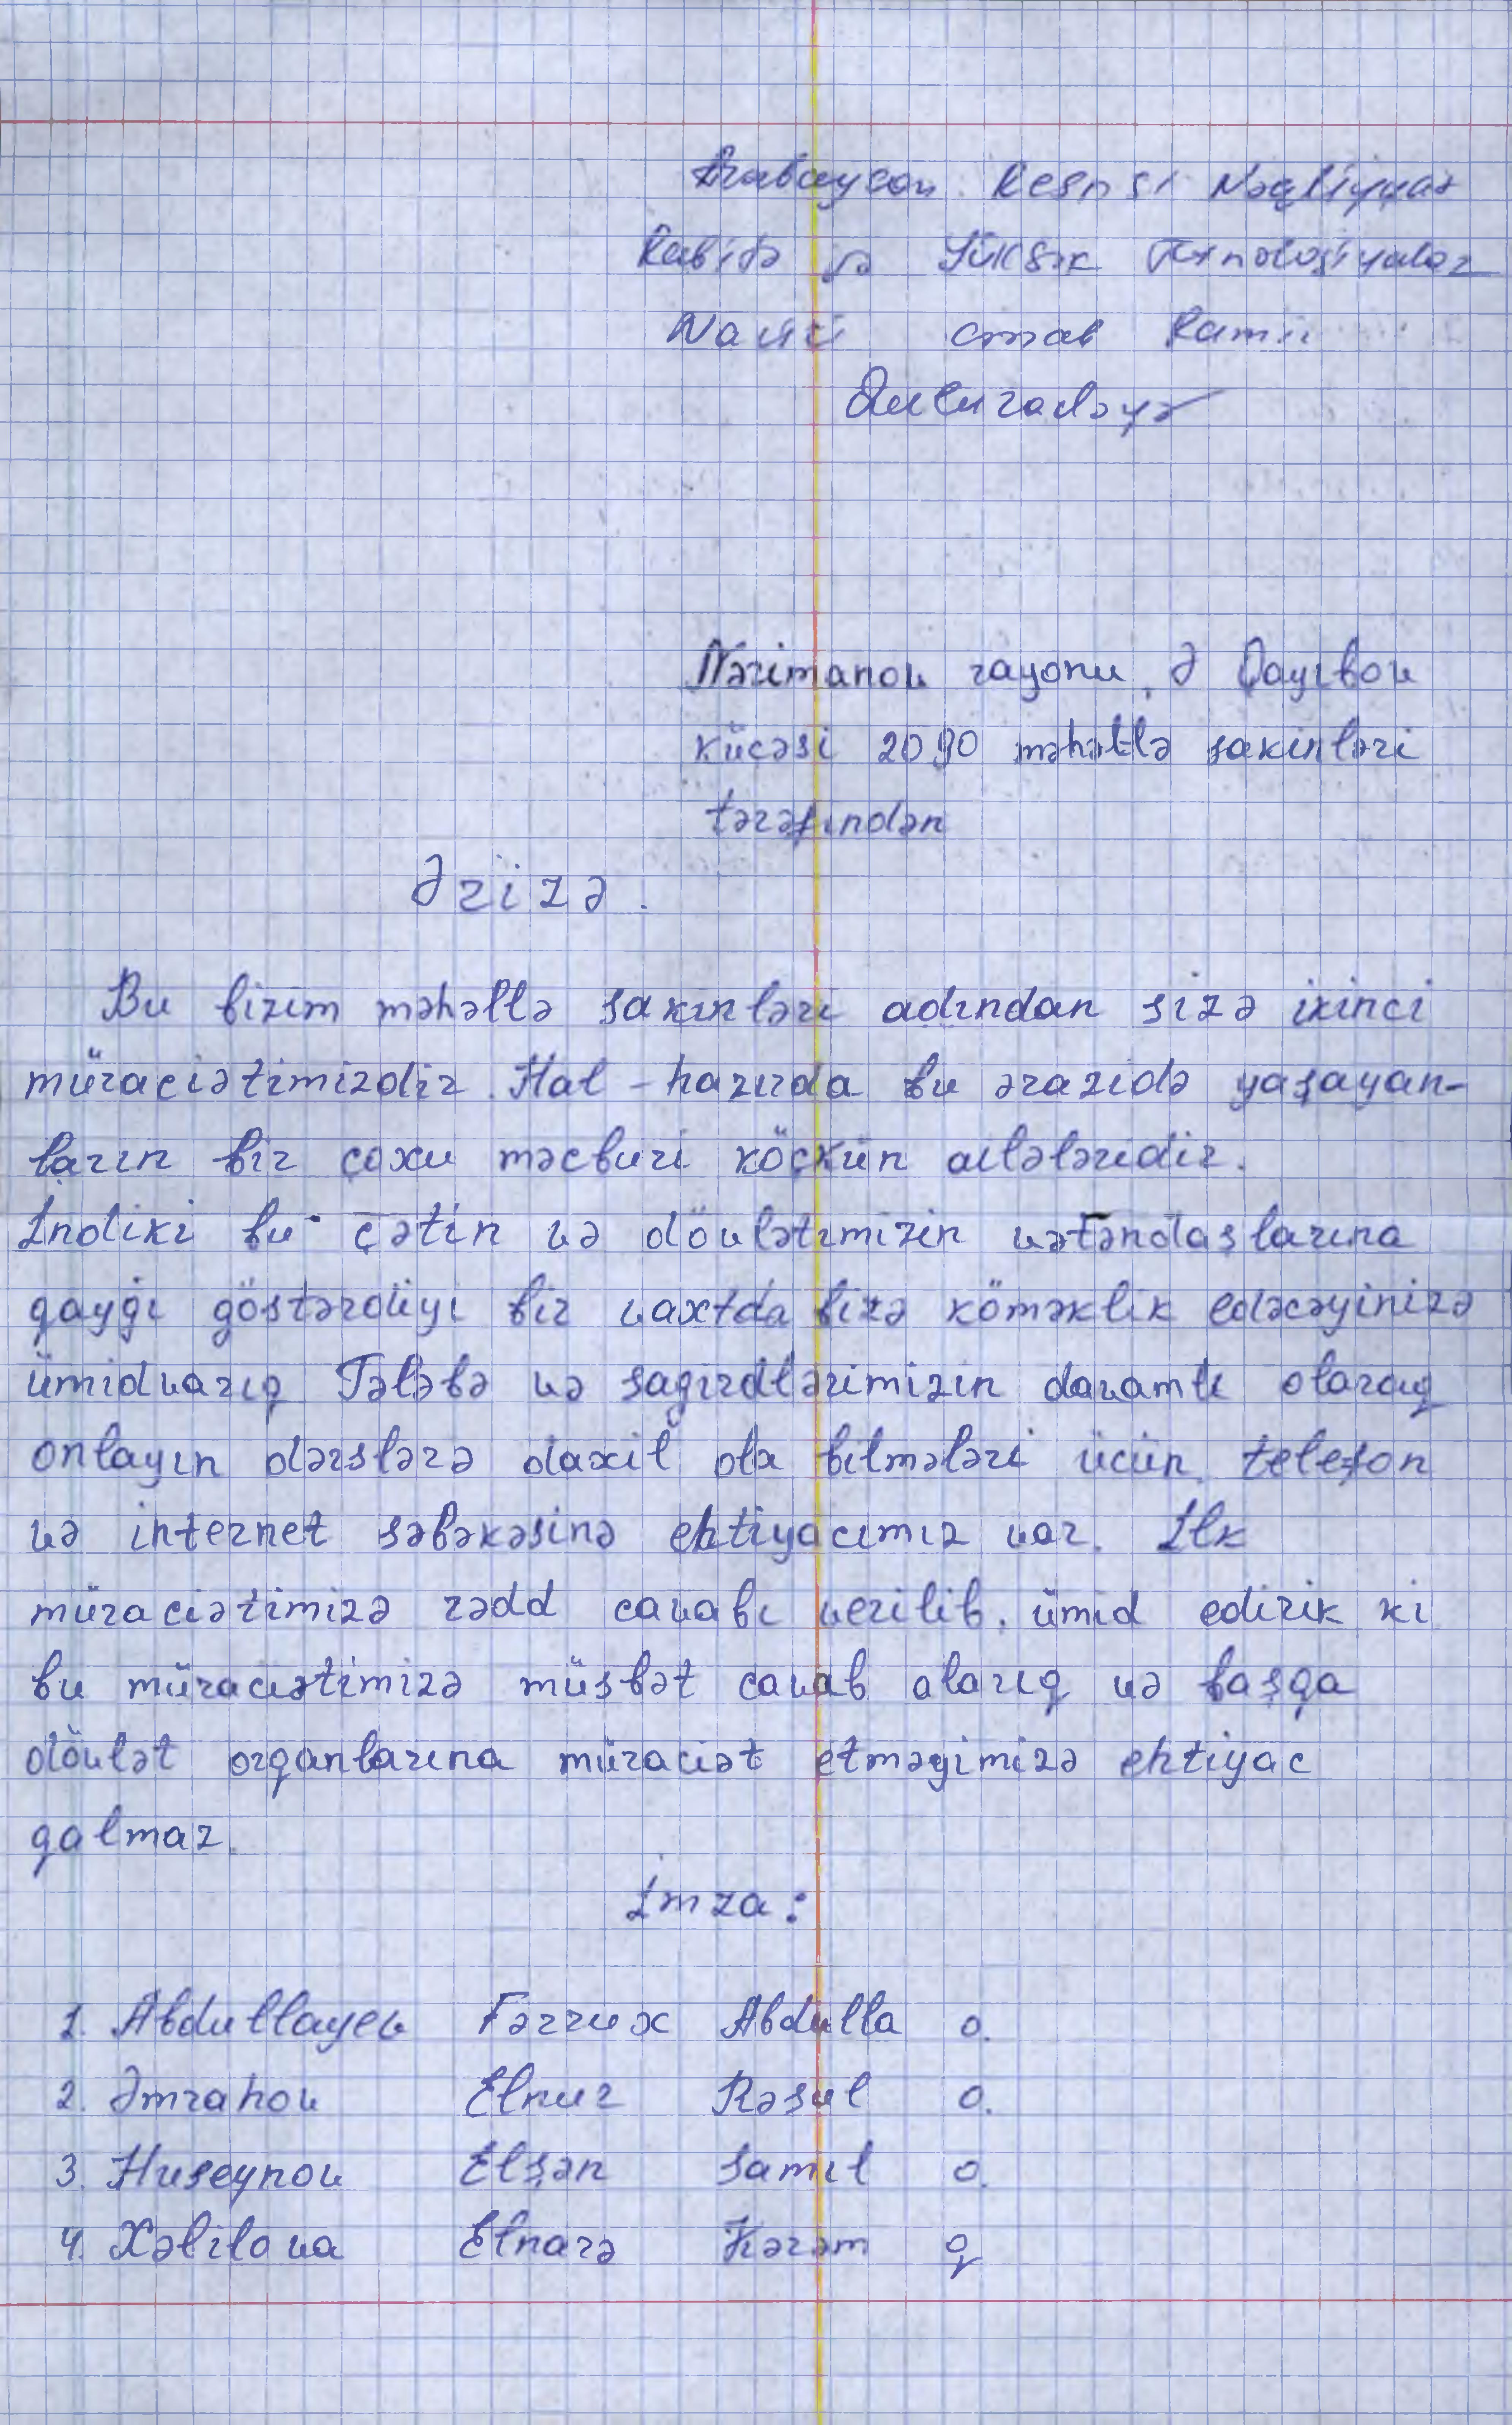 Azərbaycan Resp sı Nəqliyyat
Rabitə və Yüksək Texnologiyalar
Naziri cənab Ramin
Quluzadəyə
Nərimanov rayonu, Ə Qayıbov
küçəsi 2090 məhəllə sakinləri
tərəfindən
Ərizə.
Bu bizim məhəllə sakinləri adından sizə ikinci
müraciətimizdir. Hal-hazırda bu ərazidə yaşayan-
ların bir çoxu məcburi köçkün ailələridir.
İndiki bu çətin və dövlətimizin vətəndaşlarına
qayğı göstərdiyi bir vaxtda bizə köməklik edəcəyinizə
ümidvarıq Tələbə və şagirdlərimizin davamlı olaraq
onlayın dərslərə daxil ola bilmələri ücün telefon
və internet səbəkəsinə ehtiyacımız var. İlk
müraciətimizə rədd cavabı verilib. ümid edirik ki
bu müraciətimizə müsbət cavab alarıq və başqa
dövlət orqanlarına müraciət etməyimizə ehtiyac
qalmaz.
İmza:
1. Abdullayev Fərrux Abdulla o.
2. Əmrahov Elnur Rəsul o.
3. Huseynov Elşən Samil o.
4. Xəlilova Elnarə Kərəm q